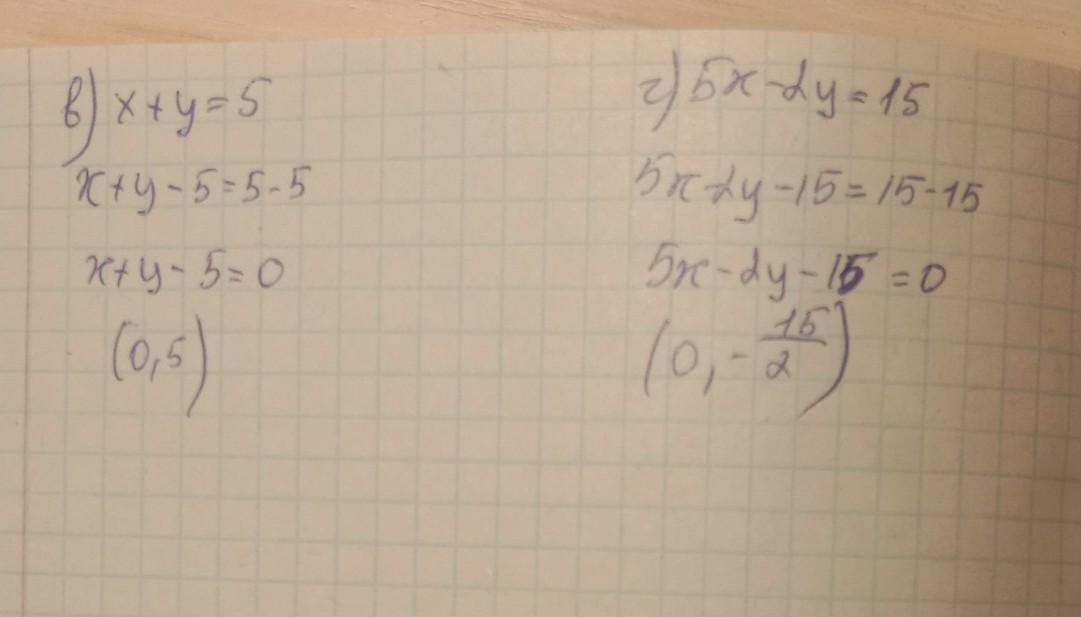 в) x+y=5
x+y-5=5-5
x+y-5=0
(0,5)
г) 5x-2y=15
5x-2y-15=15-15
5x-2y-15=0
(0,-15/2)